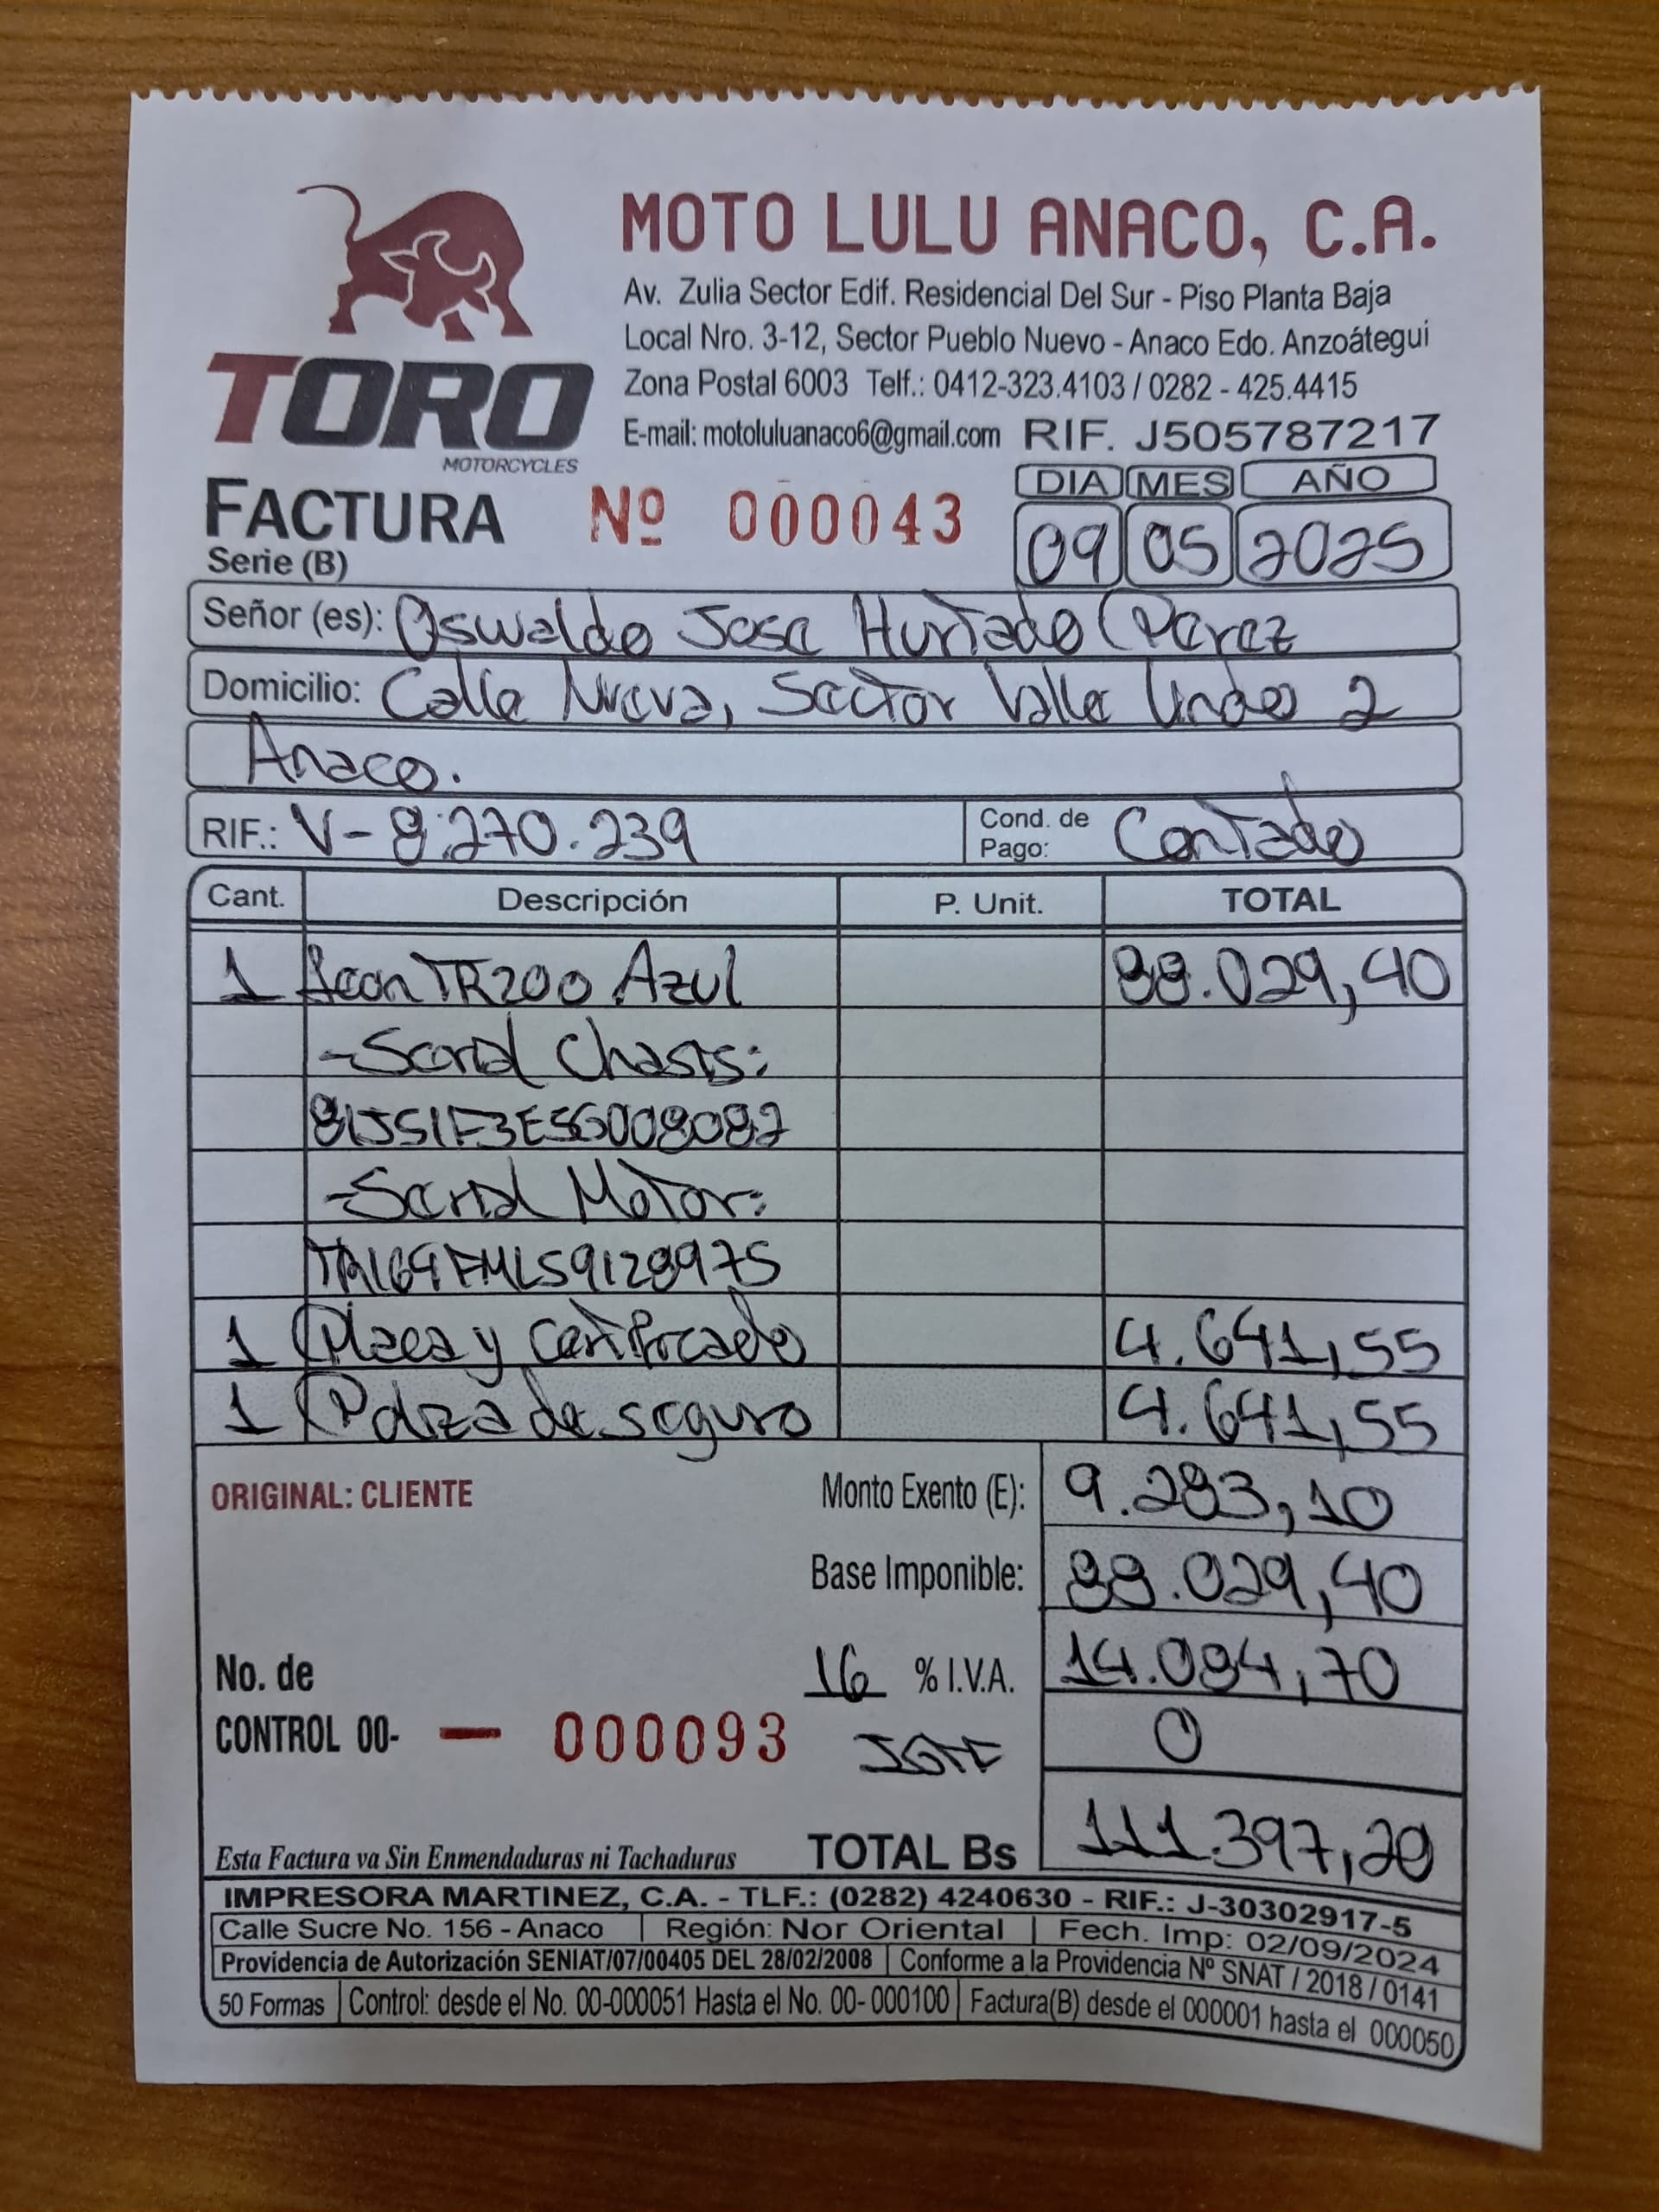 TORO
MOTORCYCLES
MOTO LULU ANACO, C.A.
Av. Zulia Sector Edif. Residencial Del Sur - Piso Planta Baja
Local Nro. 3-12, Sector Pueblo Nuevo - Anaco Edo. Anzoátegui
Zona Postal 6003 Telf.: 0412-323.4103 / 0282 - 425.4415
E-mail: motoluluanaco6@gmail.com RIF. J505787217
DIA MES AÑO
FACTURA Nº 000043 09 05 2025
Serie (B)
Señor (es): Oswaldo Jose Hurtado Perez
Domicilio: Calle Nueva, Sector Valle Lindo 2
Anaco.
RIF.: V-8.270.239 Cond. de Pago: Contado
Cant. Descripción P. Unit. TOTAL
1 TR200 Azul 88.029,40
-Serial Chasis:
-Serial Motor:
1 Placa y Certificado 4.641,55
1 Poliza de seguro 4.641,55
ORIGINAL: CLIENTE Monto Exento (E): 9.283,10
Base Imponible: 88.029,40
16 % I.V.A. 14.084,70
No. de
CONTROL 00- — 000093 IGTF 0
Esta Factura va Sin Enmendaduras ni Tachaduras TOTAL Bs 111.397,20
IMPRESORA MARTINEZ, C.A. - TLF.: (0282) 4240630 - RIF.: J-30302917-5
Calle Sucre No. 156 - Anaco Región: Nor Oriental Fech. Imp: 02/09/2024
Providencia de Autorización SENIAT/07/00405 DEL 28/02/2008 Conforme a la Providencia Nº SNAT / 2018 / 0141
50 Formas Control: desde el No. 00-000051 Hasta el No. 00- 000100 Factura(B) desde el 000001 hasta el 000050